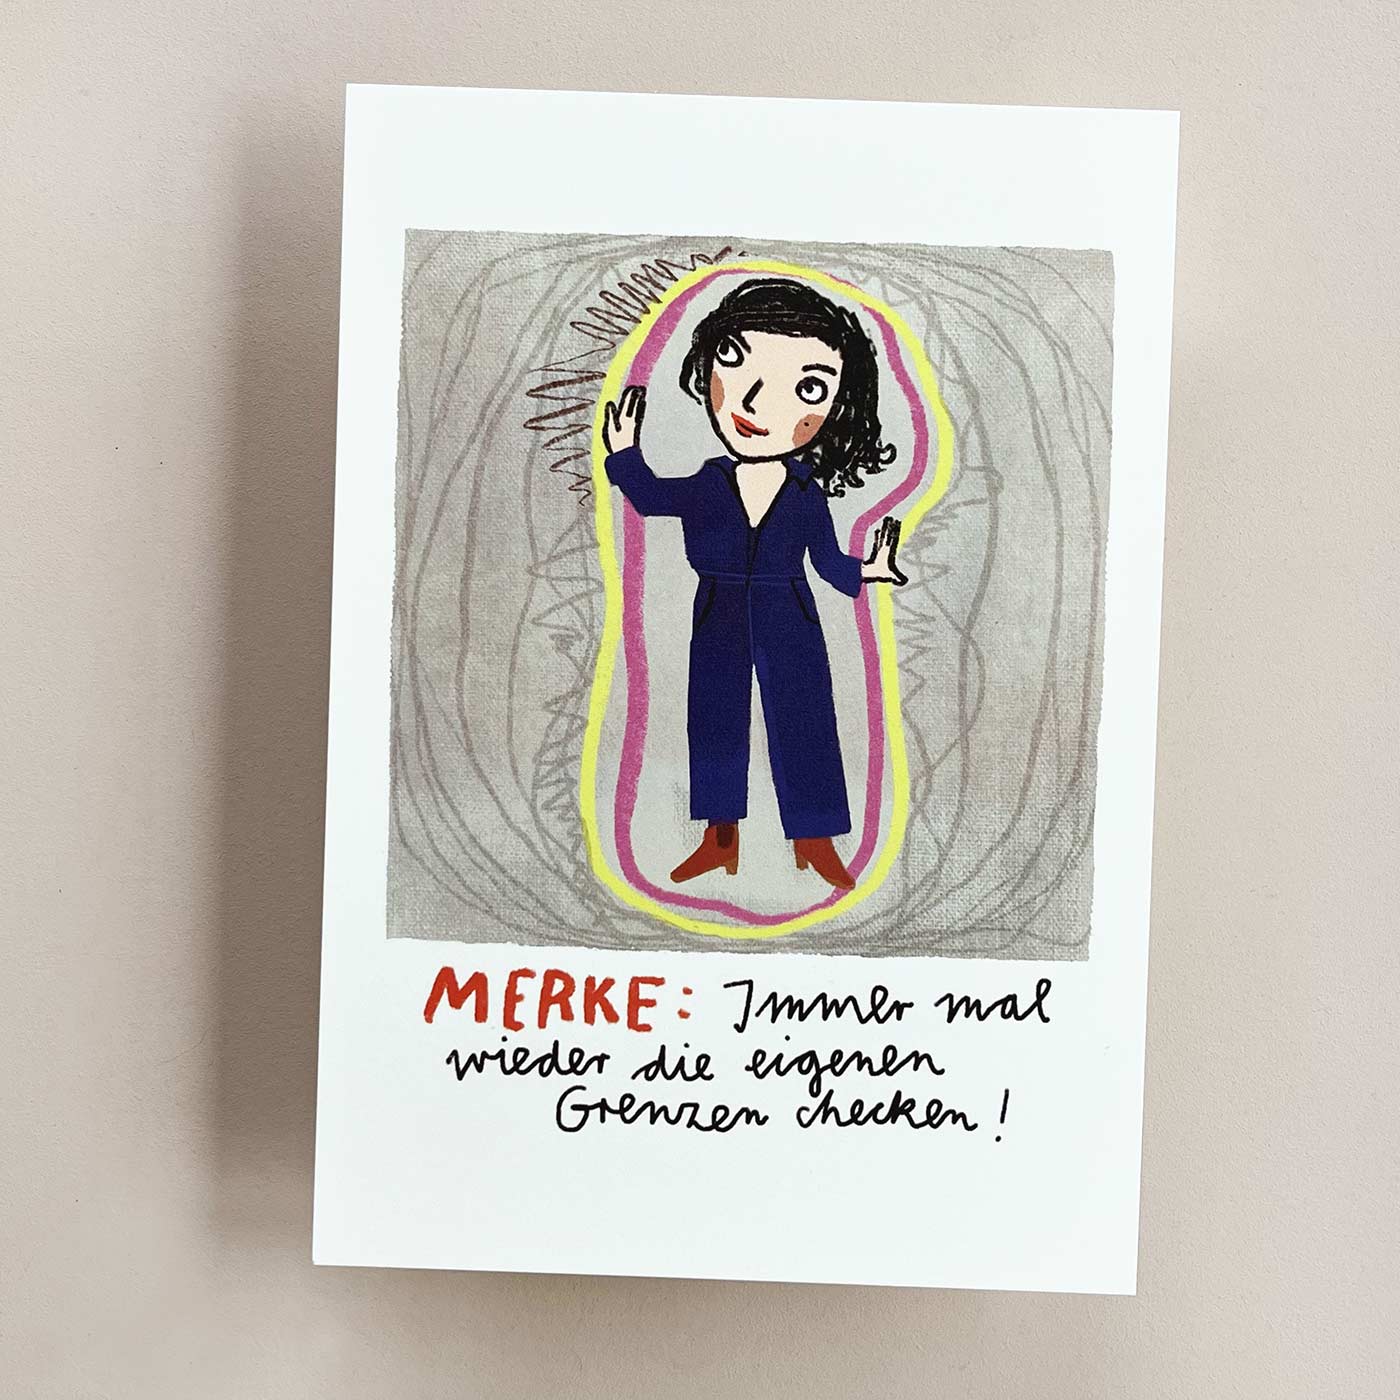 MERKE: Immer mal
wieder die eigenen
Grenzen checken!